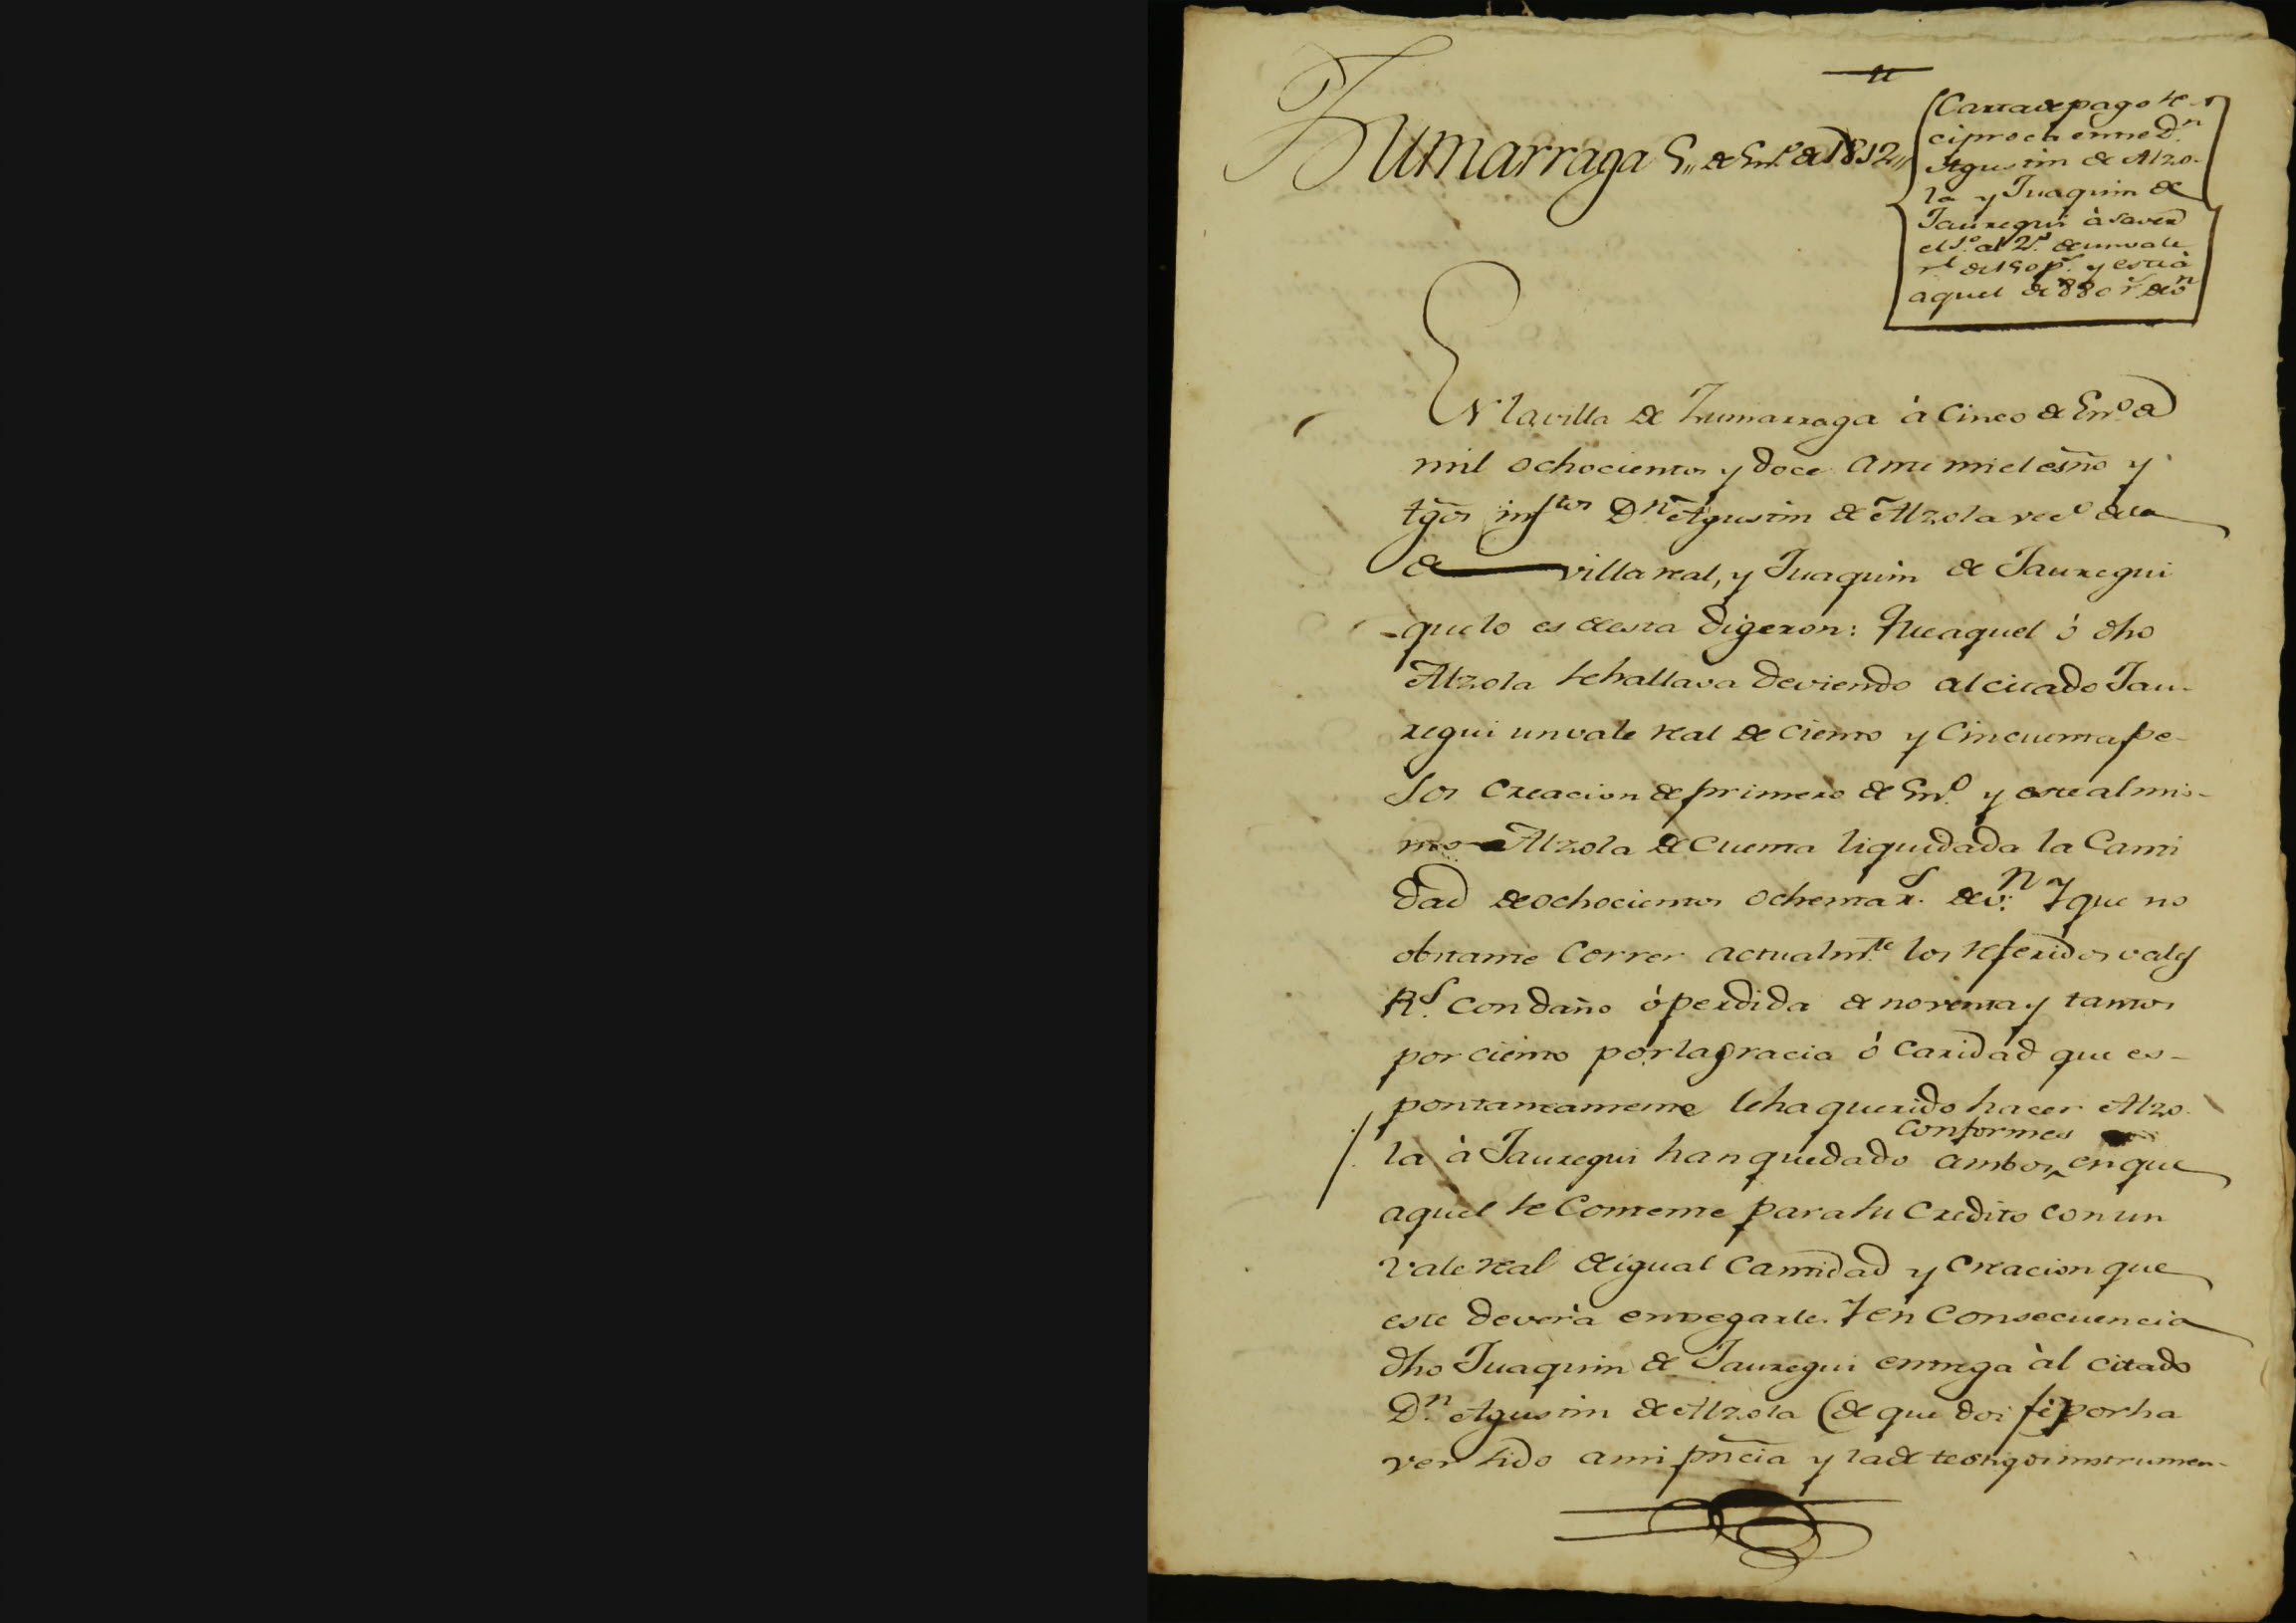 Zumarraga 5,, de En.º de 1812,,
Carta de pago re-
ciproca entre D.n
Agustin de Alzo-
la y Juaquin de
Jauregui à saver
el 1.º al 2.º de un vale
r.l de 150 p.s y este à
aquel de 880 r.s de v.n
En la villa de Zumarraga à cinco de En.º de
mil ochocientos y doce ante mi el esño y
tgõs inftos D.n Agustin de Alzola vecº de la
de villa real, y Juaquin de Jauregui
que lo es de esta digeron: Que aquel ó dho
Alzola se hallava deviendo al citado Jau-
regui un vale real de ciento y cincuenta pe-
sos creacion de primero de En.º y este al mis-
mo Alzola de cuenta liquidada la canti
dad de ochocientos ochenta r.s de v.n Y que no
obstante correr actualm.te los referidos vales
R.s con daño ó perdida de noventa y tantos
por ciento por la gracia ó caridad que es-
pontaneamente le ha querido hacer Alzo-
la à Jauregui han quedado ambos conformes en que
aquel se contente para su credito con un
vale real de igual cantidad y creacion que
este deverà entregarle. Y en consecuencia
dho Juaquin de Jauregui entrega àl citado
D.n Agustin de Alzola (de que doi fè) por ha
ver sido a mi pñcia y la de testigos instrumen-